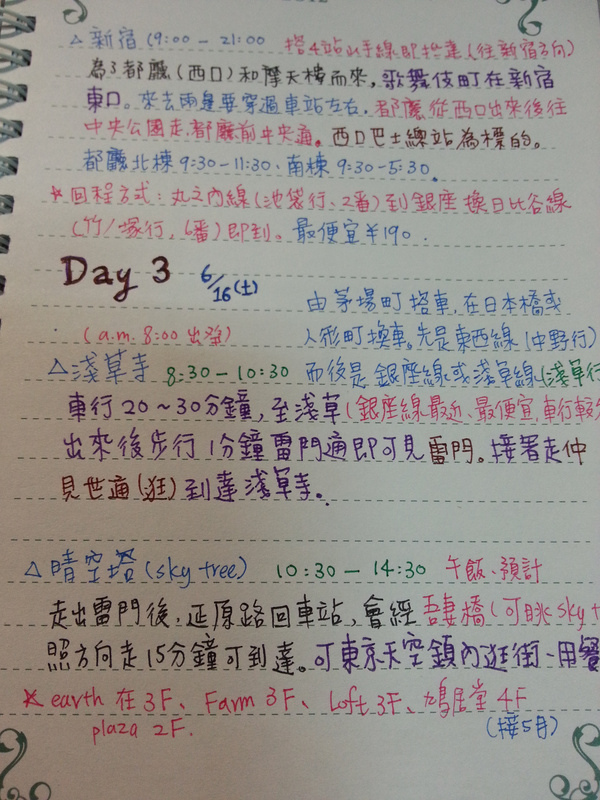 △新宿 (9:00 – 21:00 搭4站山手線即抵達(往新宿方向)
為了都廳(西口)和摩天樓而來,歌舞伎町在新宿
東口。來去兩邊要穿過車站左右,都廳從西口出來後往
中央公園走,都廳前中央通。西口巴士總站為標的。
都廳北棟 9:30-11:30、南棟 9:30-5:30。
*回程方式:丸之內線(池袋行、2番)到銀座 換日比谷線
(竹ノ塚行、6番)即到。最便宜¥190.
Day 3 6/16(土)
由茅場町搭車,在日本橋或
(a.m. 8:00 出發) 人形町換車。先是東西線(中野行)
△淺草寺 8:30-10:30 而後是 銀座線或淺草線(淺草行
車行20~30分鐘,至淺草(銀座線最近、最便宜,車行較
出來後步行1分鐘雷門通即可見雷門。接著走仲
見世通(逛)到達淺草寺。
△晴空塔(sky tree) 10:30 – 14:30 午飯、預計
走出雷門後,延原路回車站,會經吾妻橋(可眺sky t
照方向走15分鐘可到達。可東京天空鎮內逛街、用餐
*earth 在3F、Farm 3F、Loft 3F、鳩居堂4F
plaza 2F. (接5月)